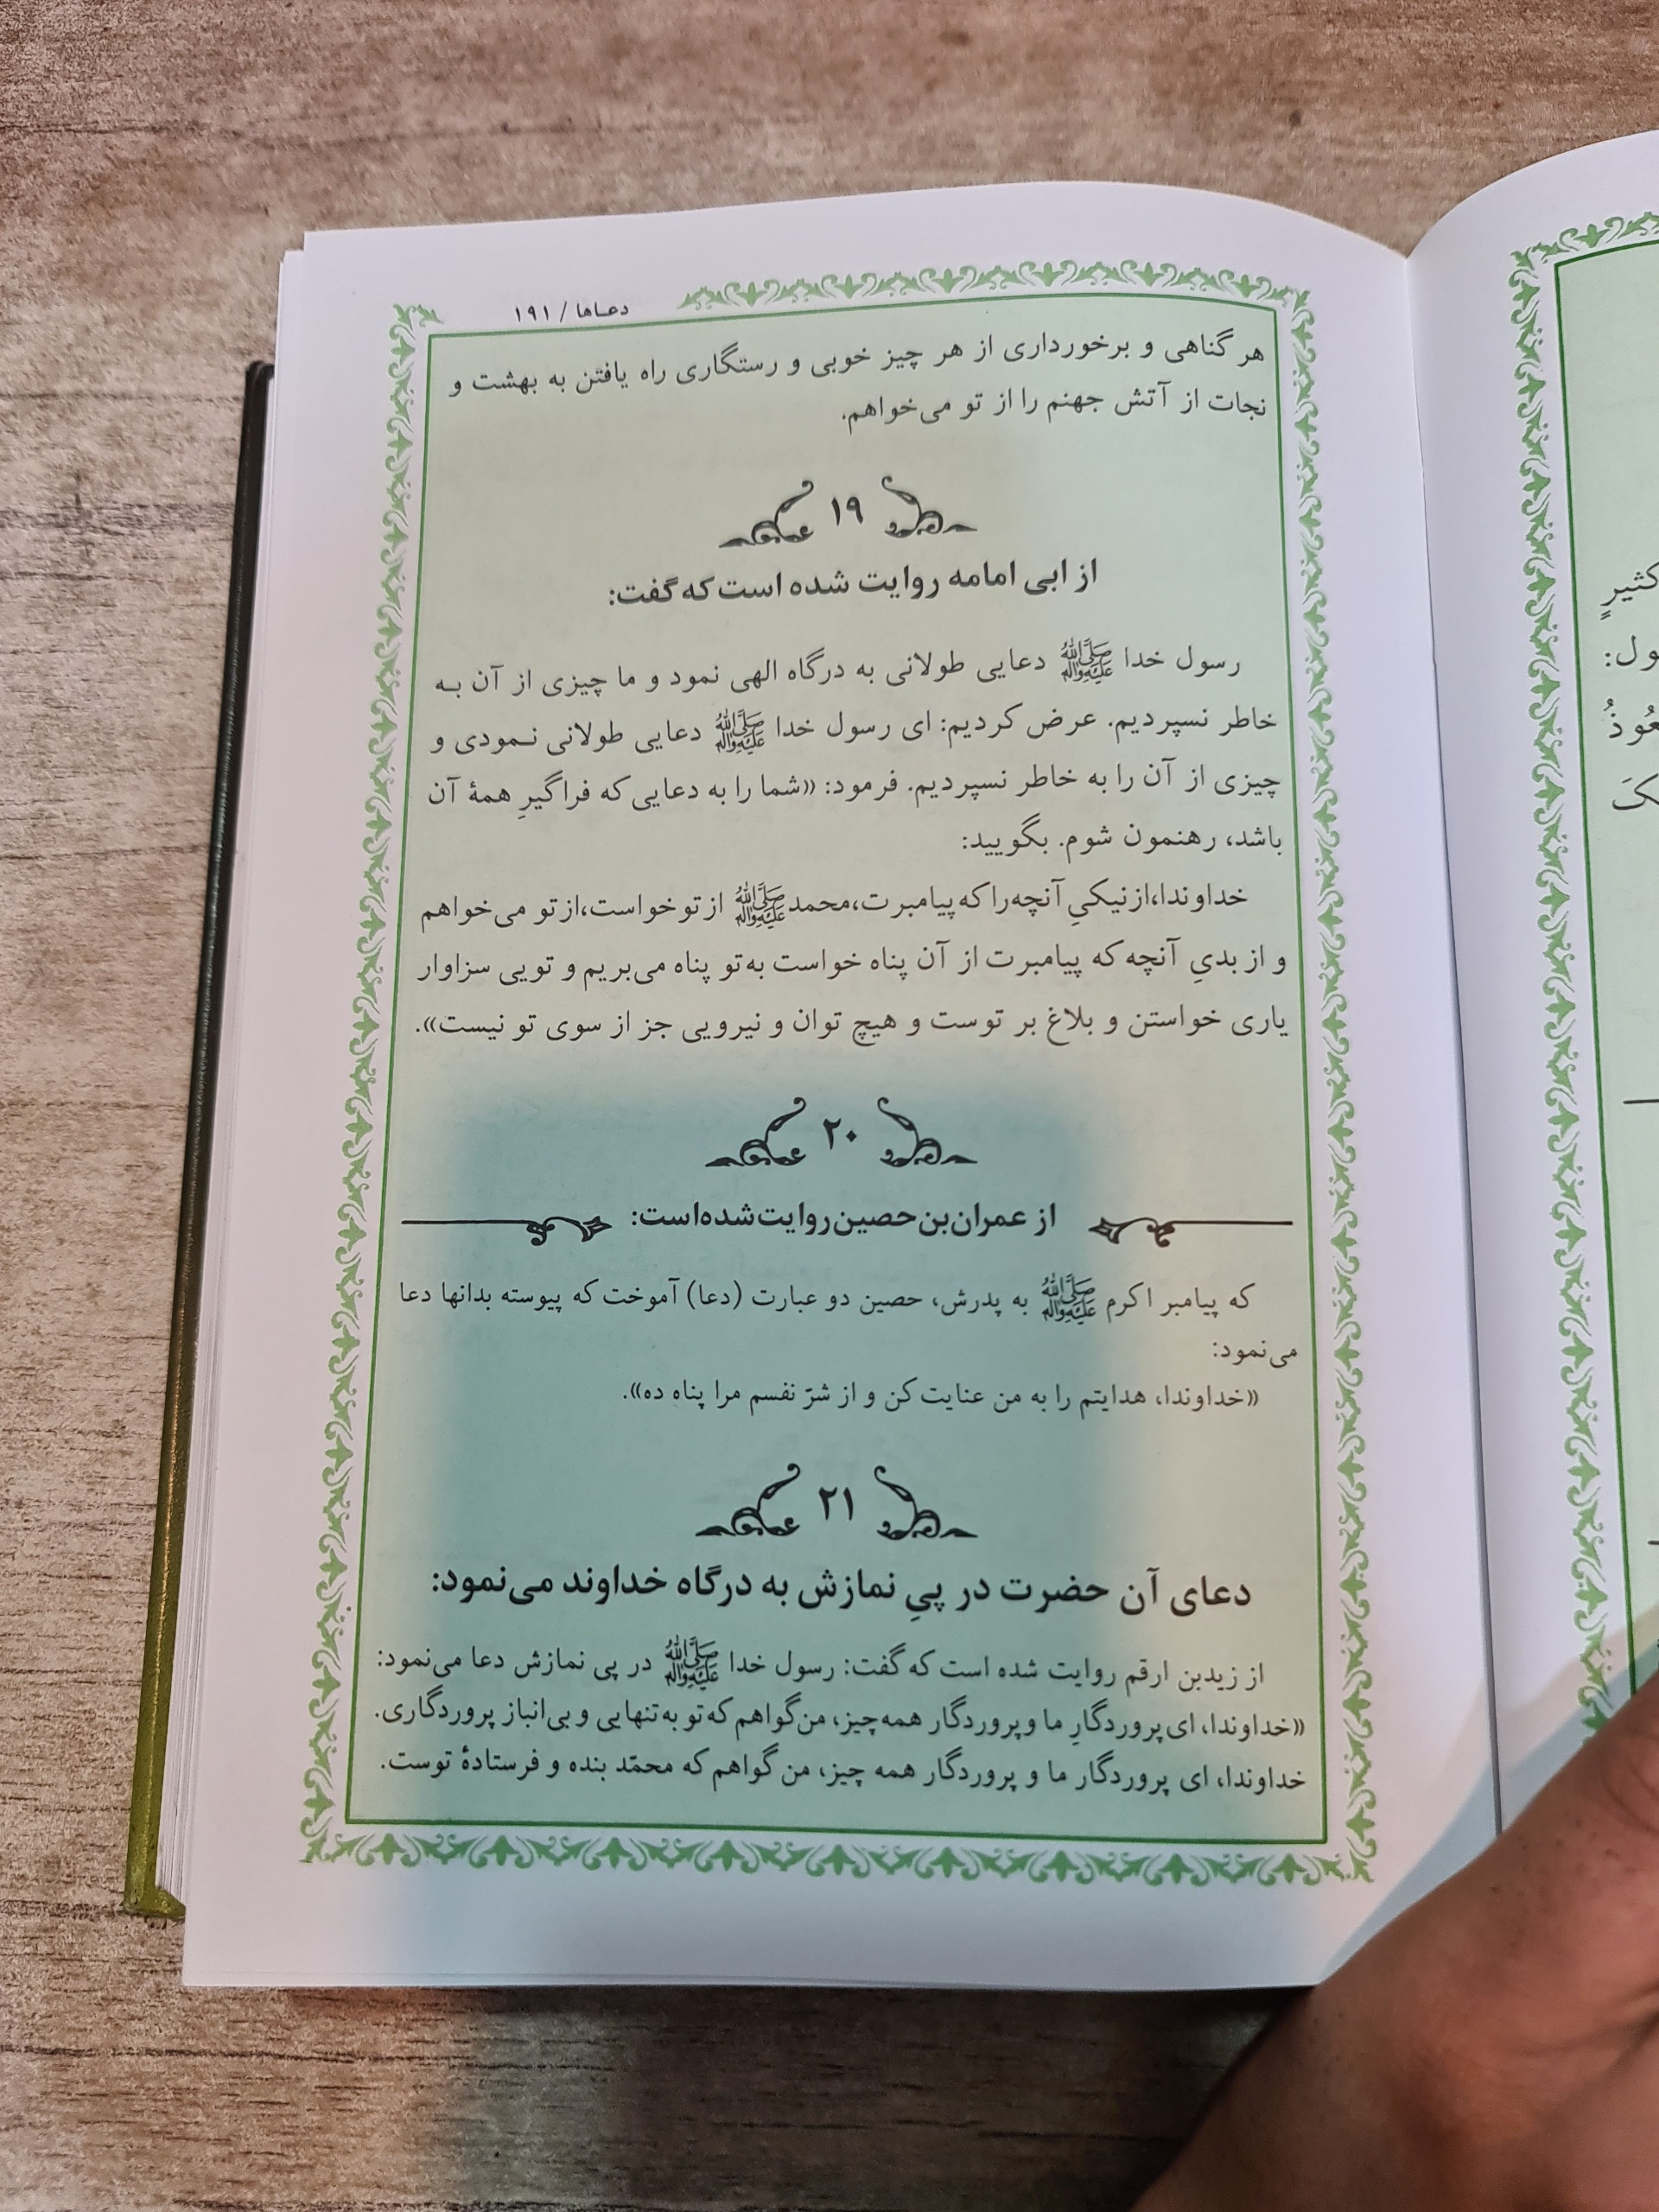 دعاها / ۱۹۱
هر گناهی و برخورداری از هر چیز خوبی و رستگاری راه یافتن به بهشت و
نجات از آتش جهنم را از تو می‌خواهم.
۱۹
از ابی امامه روایت شده است که گفت:
رسول خدا ﷺ دعایی طولانی به درگاه الهی نمود و ما چیزی از آن به
خاطر نسپردیم. عرض کردیم: ای رسول خدا ﷺ دعایی طولانی نمودی و
چیزی از آن را به خاطر نسپردیم. فرمود: «شما را به دعایی که فراگیرِ همهٔ آن
باشد، رهنمون شوم. بگویید:
خداوندا، از نیکیِ آنچه را که پیامبرت، محمد ﷺ از تو خواست، از تو می‌خواهم
و از بدیِ آنچه که پیامبرت از آن پناه خواست به تو پناه می‌بریم و تویی سزاوار
یاری خواستن و بلاغ بر توست و هیچ توان و نیرویی جز از سوی تو نیست».
۲۰
از عمران بن حصین روایت شده است:
که پیامبر اکرم ﷺ به پدرش، حصین دو عبارت (دعا) آموخت که پیوسته بدانها دعا
می‌نمود:
«خداوندا، هدایتم را به من عنایت کن و از شرّ نفسم مرا پناه ده».
۲۱
دعای آن حضرت در پیِ نمازش به درگاه خداوند می‌نمود:
از زیدبن ارقم روایت شده است که گفت: رسول خدا ﷺ در پی نمازش دعا می‌نمود:
«خداوندا، ای پروردگارِ ما و پروردگار همه چیز، من گواهم که تو به تنهایی و بی‌انباز پروردگاری.
خداوندا، ای پروردگار ما و پروردگار همه چیز، من گواهم که محمّد بنده و فرستادهٔ توست.
کثیرٍ